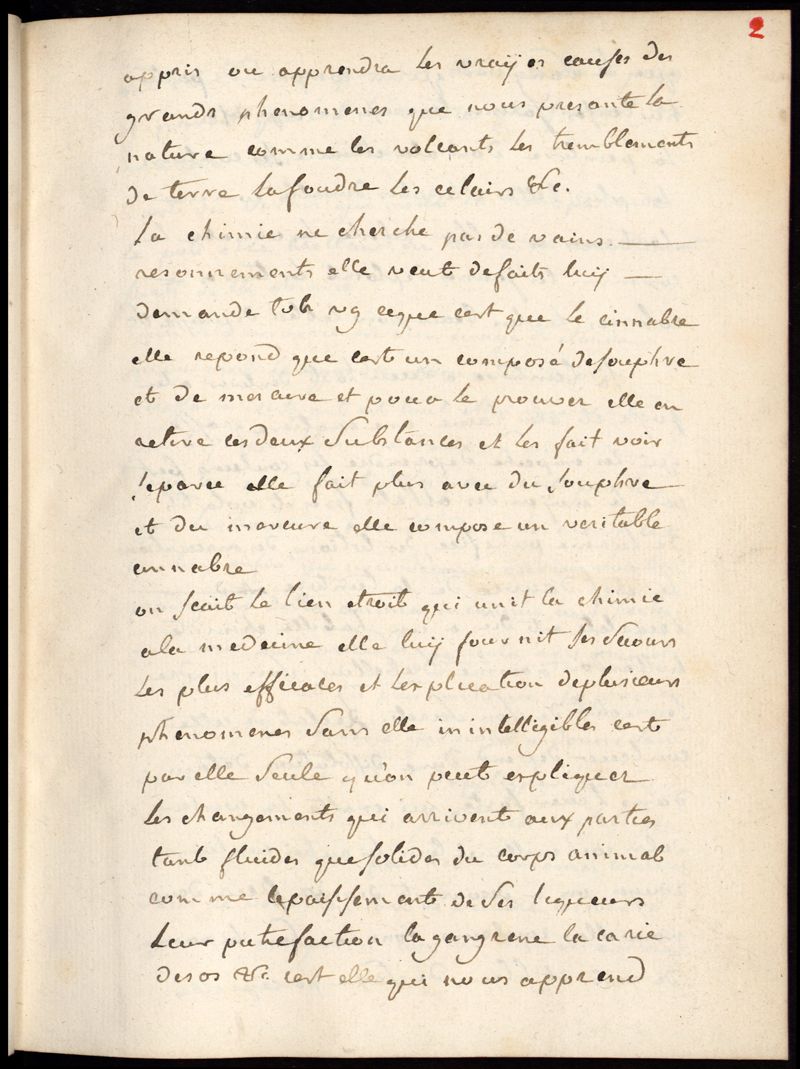 2
appris ou apprendra les vrayes causes des
grands phenomenes que nous presente la
nature comme les volcants les tremblements
de terre la foudre les eclairs &c.
La chimie ne cherche pas de vains
resonnements elle veut de faits luy
demande t'on vg ceque cest que le cinnabre
elle repond que cest un composé de souphre
et de mercure et pour le prouver elle en
retire ces deux substances et les fait voir
separee elle fait plus avec du souphre
et du mercure elle compose un veritable
cinnabre
on scait le lien etroit qui unit la chimie
a la medecine elle luy fournit ses secours
les plus efficaces et lexplication de plusieurs
phenomenes sans elle inintelligibles cest
par elle seule qu'on peut expliquer
les changements qui arrivent aux parties
tant fluides que solides du corps animal
comme lepaissement de ses liqueurs
leur putrefaction la gangrene la carie
des os &c. cest elle qui nous apprend